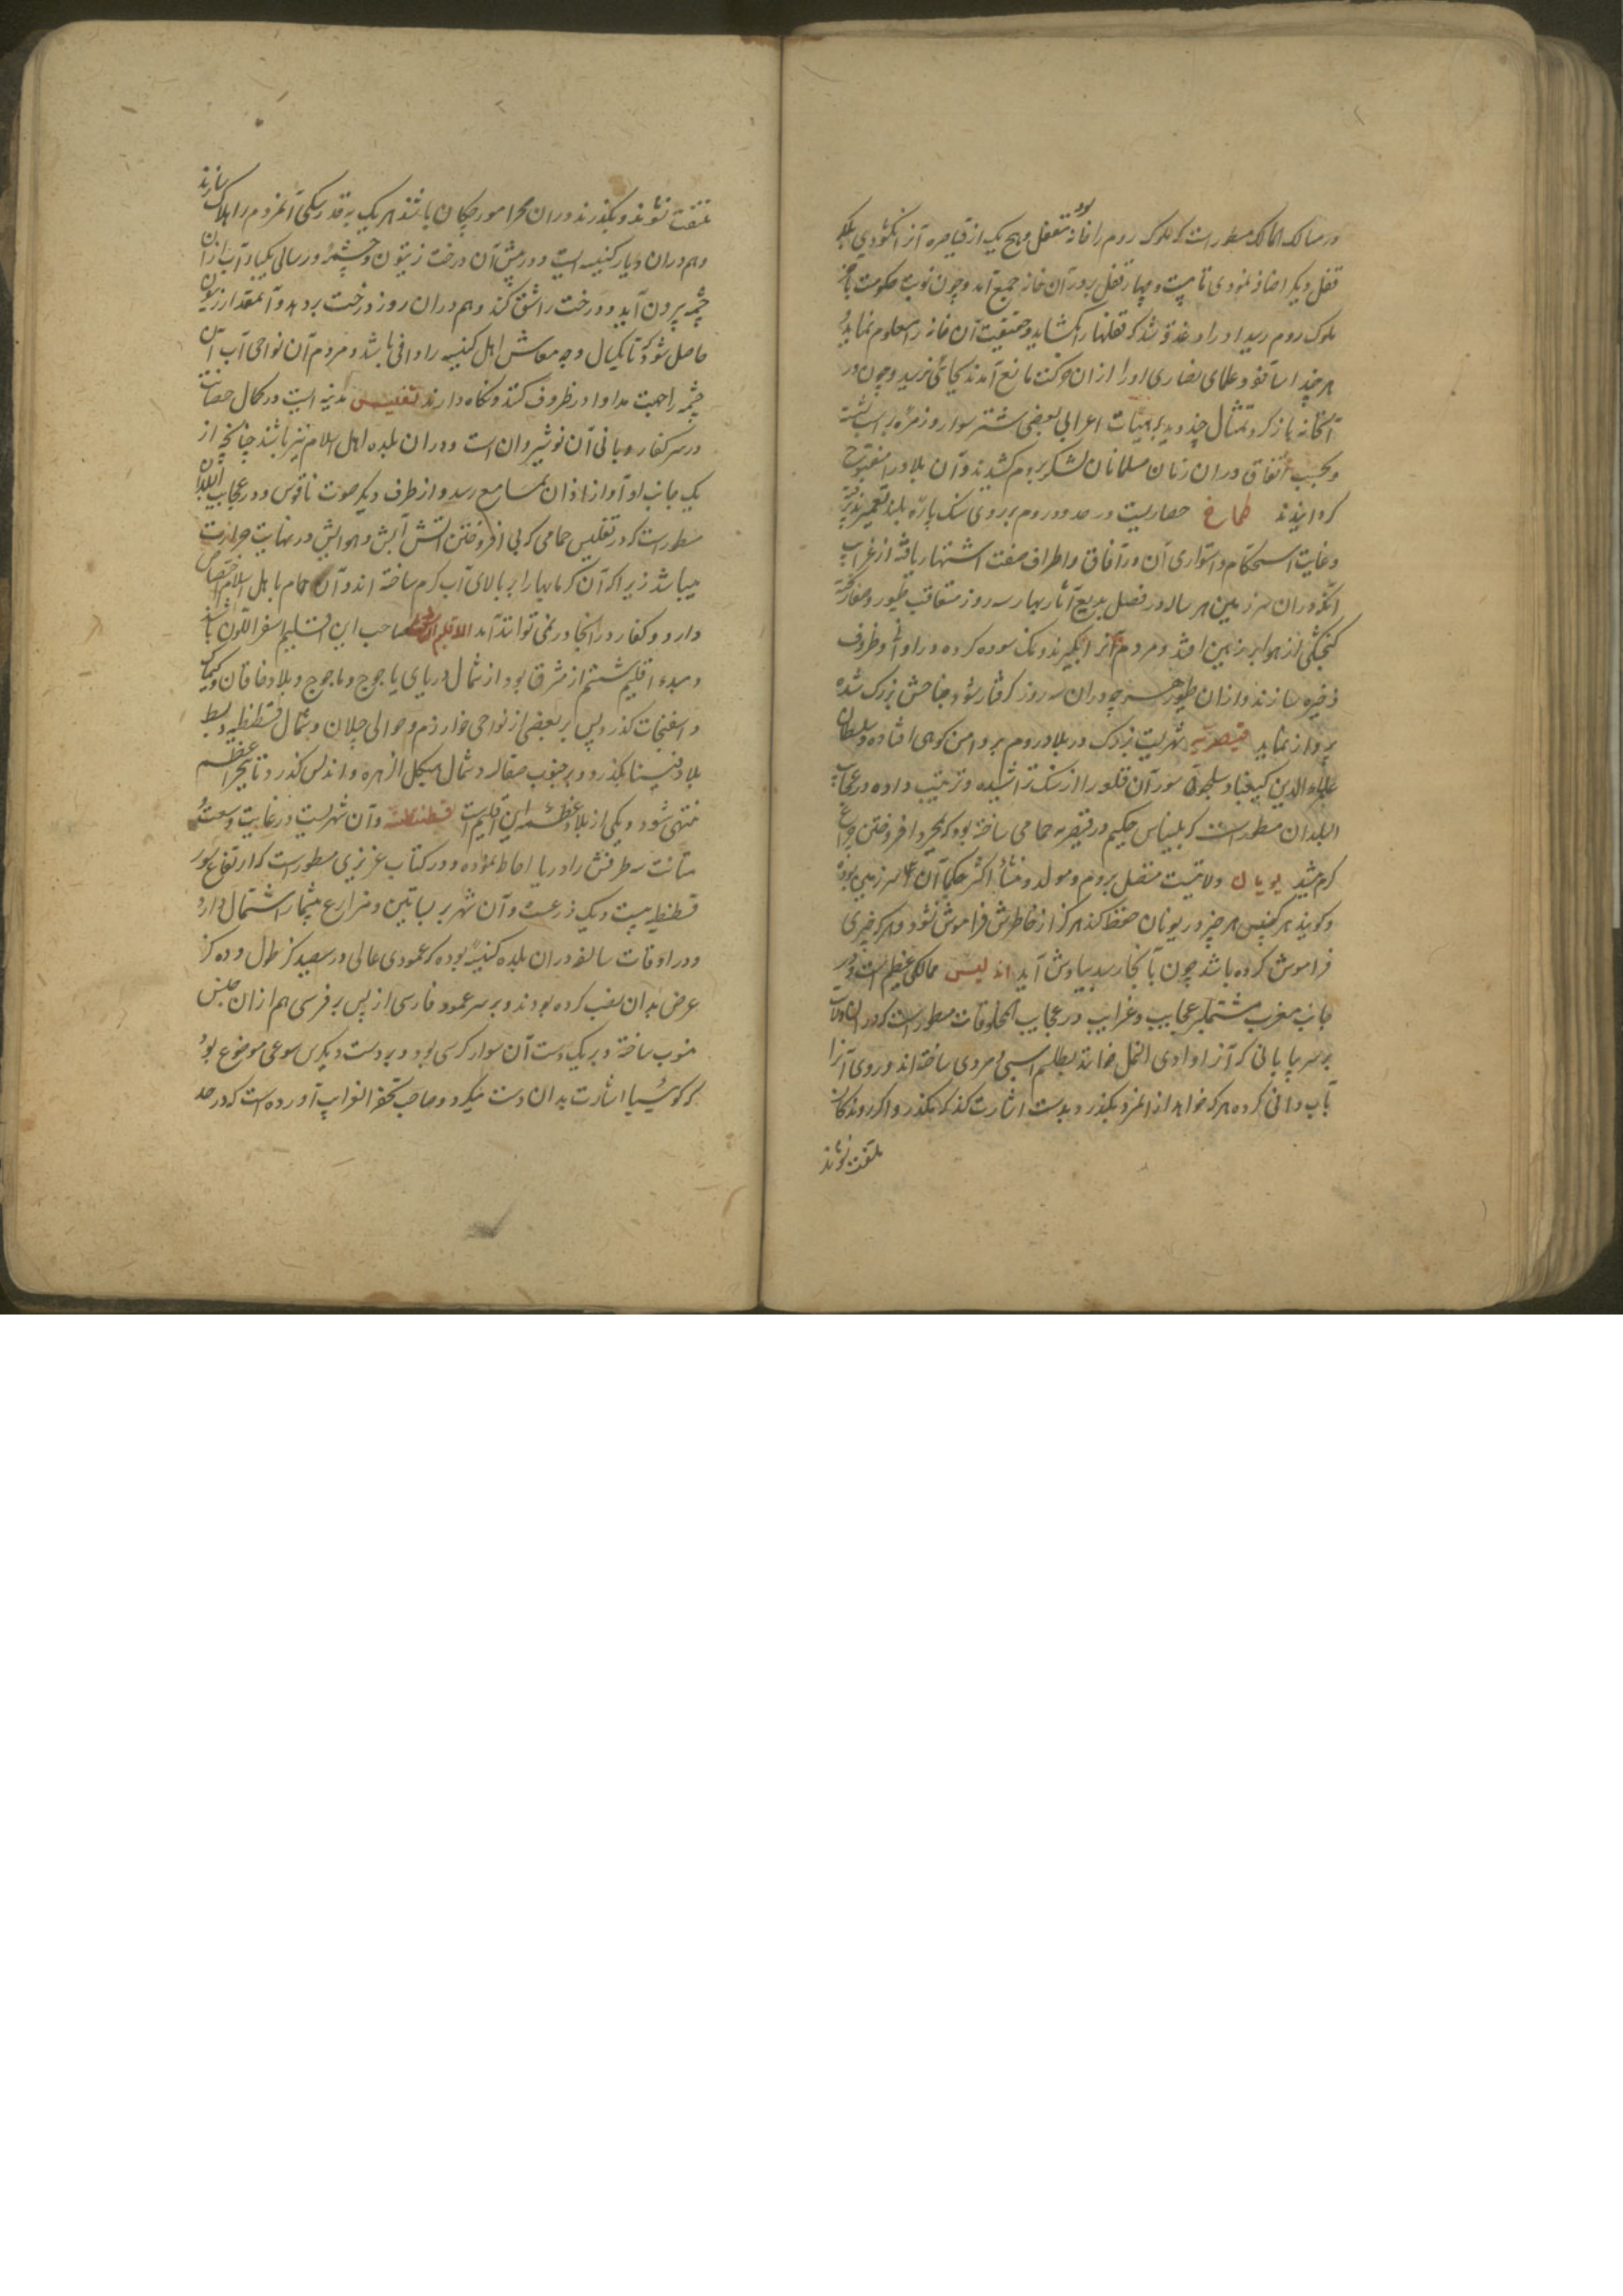 در مسالک الممالک مسطور است که ملوک روم را خانه بود مقفل و هیچ یک از قیاصره آنرا نگشودی بلکه
قفل دیگر اضافه نمودی تا بیست و چهار قفل بر در آن خانه جمع آمد و چون نوبت حکومت بآخر
ملوک روم رسید او را دغدغه شد که قفلها را بگشاید و حقیقت آن خانه را معلوم نماید
هر چند اساقفه و علمای نصاری او را از ان حرکت مانع آمدند بجائی نرسید و چون در
آنخانه باز کرد تمثال چند دید بر هیئات اعرابی بعضی شتر سوار و زمره بر اسب نشسته
و بحسب اتفاق در ان زمان مسلمانان لشکر بروم کشیدند و آن بلاد را مفتوح
گردانیدند طماخ حصاریست در حدود روم بر روی سنگ پاره بلند تعمیر
و غایت استحکام و استواری آن در آفاق و اطراف صفت اشتهار یافته از غرایب
آنکه در ان سرزمین هر ساله در فصل بدیع آثار بهار سه روز متعاقب طیور و صغار
کنجشکی از هوا بر زمین افتد و مردم آنرا بگیرند و نمک سوده کرده در اوانی و ظروف
ذخیره سازند و از ان طیور هر چه در ان سه روز گرفتار نشود جناحش بزرک شده
پرواز نماید قیصریه شهریست بزرک در بلاد روم بر دامن کوهی افتاده و سلطان
علاء الدین کیقباد سلجوقی سور آن قلعه را از سنگ تراشیده ترتیب داده در عجایب
البلدان مسطور است که بلیناس حکیم در قیصریه حمامی ساخته بود که بمجرد افروختن چراغ
گرم میشد یونان ولایتیست متصل بروم و مولد و منشأ اکثر حکما آن سرزمین بوده
و گویند هر کس هر چیز در یونان حفظ کند هرگز از خاطرش فراموش نشود و هر که چیزی
فراموش کرده باشد چون بآنجا رسد بیادش آید اندلس ممالکی عظیم است در
جانب مغرب مشتمل بر عجایب و غرایب در عجایب المخلوقات مسطور است که در ان ولایت
بر سر بیابانی که آنرا وادی النمل خوانند بطلسم اسبی و مردی ساخته اند و روی آنرا
بآب داده هر که خواهد از آنجا بگذرد بدست اشارت کند که مگذر و اگر روندگان
ملتفت نشوند
ملتفت نشوند و بگذرند در ان صحرا مورچگان باشند هر یک بقدر سگی آنمردم را هلاک سازند
و هم در ان دیار کنیسه ایست و در پیش آن درخت زیتون و چشمه و در سالی یکبار آب از ان
چشمه بیرون آید و درخت را شق کند و هم در ان روز درخت بر دهد و آنمقدار زیتون
حاصل شود که تا یکسال وجه معاش اهل کنیسه را وافی باشد و مردم آن نواحی آب آن
چشمه را جهت مداوا در ظروف کنند و نگاه دارند تفلیس مدینه ایست در کمال حصانت
در سر کفار و بانی آن نوشیروان است و در ان بلده اهل اسلام نیز باشند چنانچه از
یک جانب او آواز اذان بمسامع رسد و از طرف دیگر صوت ناقوس و در عجایب البلدان
مسطور است که در تفلیس حمامی که بی افروختن آتش آبش و هوایش در نهایت حرارت
میباشد زیرا که آن گرمابه را بر بالای آب گرم ساخته اند و آن حمام باهل اسلام اختصاص
دارد و کفار در آنجا در نمی توانند آمد الاقلیم السادس صاحب این اقلیم اسفر اللون باشد
و مبدء اقلیم ششم از مشرق بود از شمال دریای یاجوج و ماجوج و بلاد خاقان و کیماک
و اسفنجاب گذرد پس بر بعضی از نواحی خوارزم و حوالی جیلان و شمال قسطنطنیه و وسط
بلاد بگذرد و بر جنوب صقالبه و شمال هیکل الزهره و اندلس گذرد و تا بحر اعظم
منتهی شود و یکی از بلاد عظیمه این اقلیم است قسطنطنیه و آن شهریست در غایت وسعت
متانت سه طرفش را دریا احاطه نموده و در کتاب عزیزی مسطور است که ارتفاع سور
قسطنطنیه بیست و یک ذرعست و آن شهر بر بساتین و مزارع بیشمار اشتمال دارد
و در اوقات سالفه در ان بلده کنیسه بوده که عمودی عالی در سیصد گز طول و ده گز
عرض بدان نصب کرده بودند و بر سر عمود فارسی از مس بر فرسی هم از ان جنس
منصوب ساخته و بر یک دست آن سوار کرسی بود و بر دست دیگرش موضوع بود
که گوئیا اشارت بدان دست میکرد و صاحب تحفة الغرایب آورده است که در حد